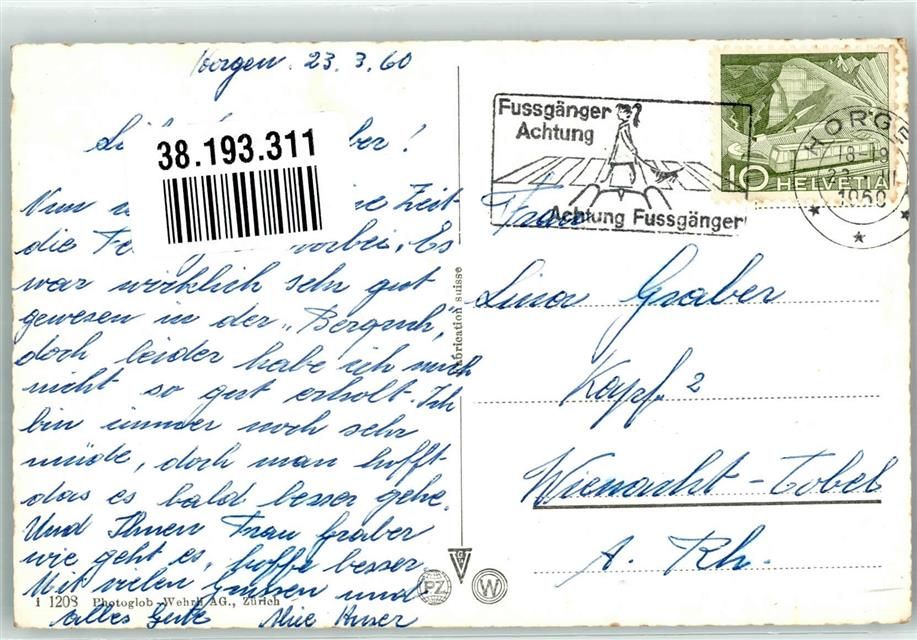 Horgen. 23.3.60
38.193.311
Nun Zeit
die vorbei. Es
war wirklich sehr gut
gewesen in der „Bergruh",
doch leider habe ich mich
nicht so gut erholt. Ich
bin immer noch sehr
müde, doch man hofft
das es bald besser gehe.
Und Ihnen Frau Graber
wie geht es, hoffe besser.
Mit vielen Grüssen und
alles Gute
i 1208 Photoglob-Wehrli AG., Zürich
Fabrication suisse
PZ
W
Fussgänger
Achtung
Achtung Fussgänger
10 HELVETIA
HORGEN
18-19
1960
Frau
Lina Graber
Kapf 2
Wienacht-Tobel
A. Rh.